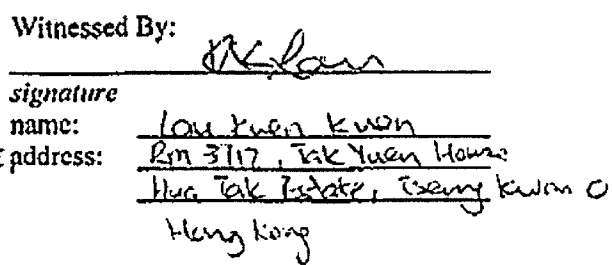 Witnessed By:
KK Lau
signature
name: Lau Kuen Kwan
address: Rm 3717, Tak Yuen House
Hau Tak Estate, Tseung Kwan O
Hong Kong